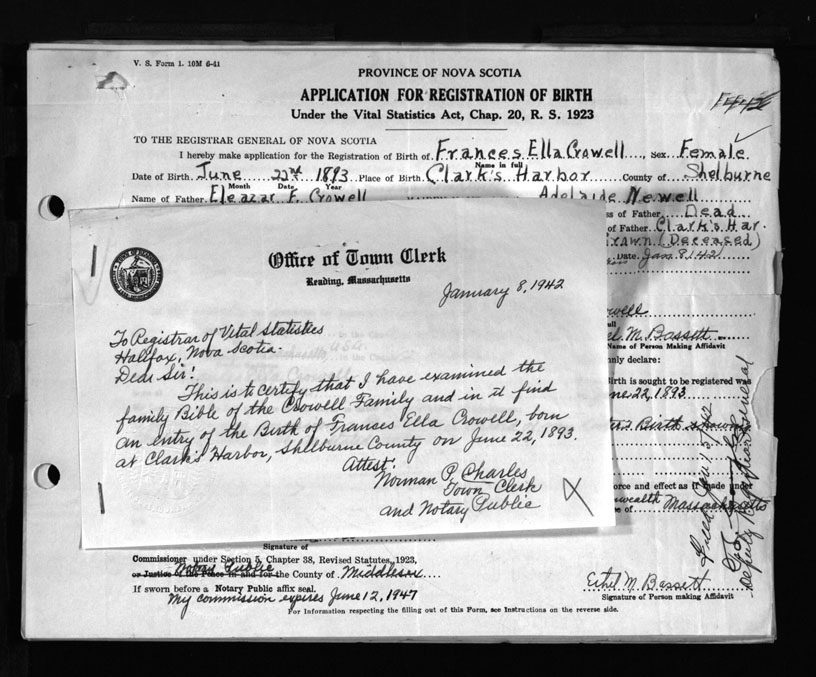 V. S. Form 1. 10M 6-41
PROVINCE OF NOVA SCOTIA
APPLICATION FOR REGISTRATION OF BIRTH
Under the Vital Statistics Act, Chap. 20, R. S. 1923
TO THE REGISTRAR GENERAL OF NOVA SCOTIA
I hereby make application for the Registration of Birth of Frances Ella Crowell, Sex Female
Name in full
Date of Birth June 22nd 1893 Place of Birth Clark's Harbor County of Shelburne
Month Date Year
Name of Father Eleazar F. Crowell Adelaide Newell
of Father Dead
of Father Clark's Har.
(Deceased)
Date Jan 8, 1942
Office of Town Clerk
Reading, Massachusetts
January 8, 1942
To Registrar of Vital Statistics
Halifax, Nova Scotia.
Dear Sir!
This is to certify that I have examined the
family Bible of the Crowell Family and in it find
an entry of the Birth of Frances Ella Crowell, born
at Clark's Harbor, Shelburne County on June 22, 1893.
Attest!
Norman P. Charles
Town Clerk
and Notary Public
M. Bassett
Name of Person Making Affidavit
declare:
Birth is sought to be registered was
22, 1893
Birth
force and effect as if made under
Massachusetts
Signature of
Commissioner under Section 5, Chapter 38, Revised Statutes, 1923,
Notary Public
or Justice of the Peace in and for the County of Middlesex
If sworn before a Notary Public affix seal.
My commission expires June 12, 1947
Ethel M. Bassett
Signature of Person making Affidavit
For Information respecting the filling out of this Form, see Instructions on the reverse side.
Deputy Registrar General